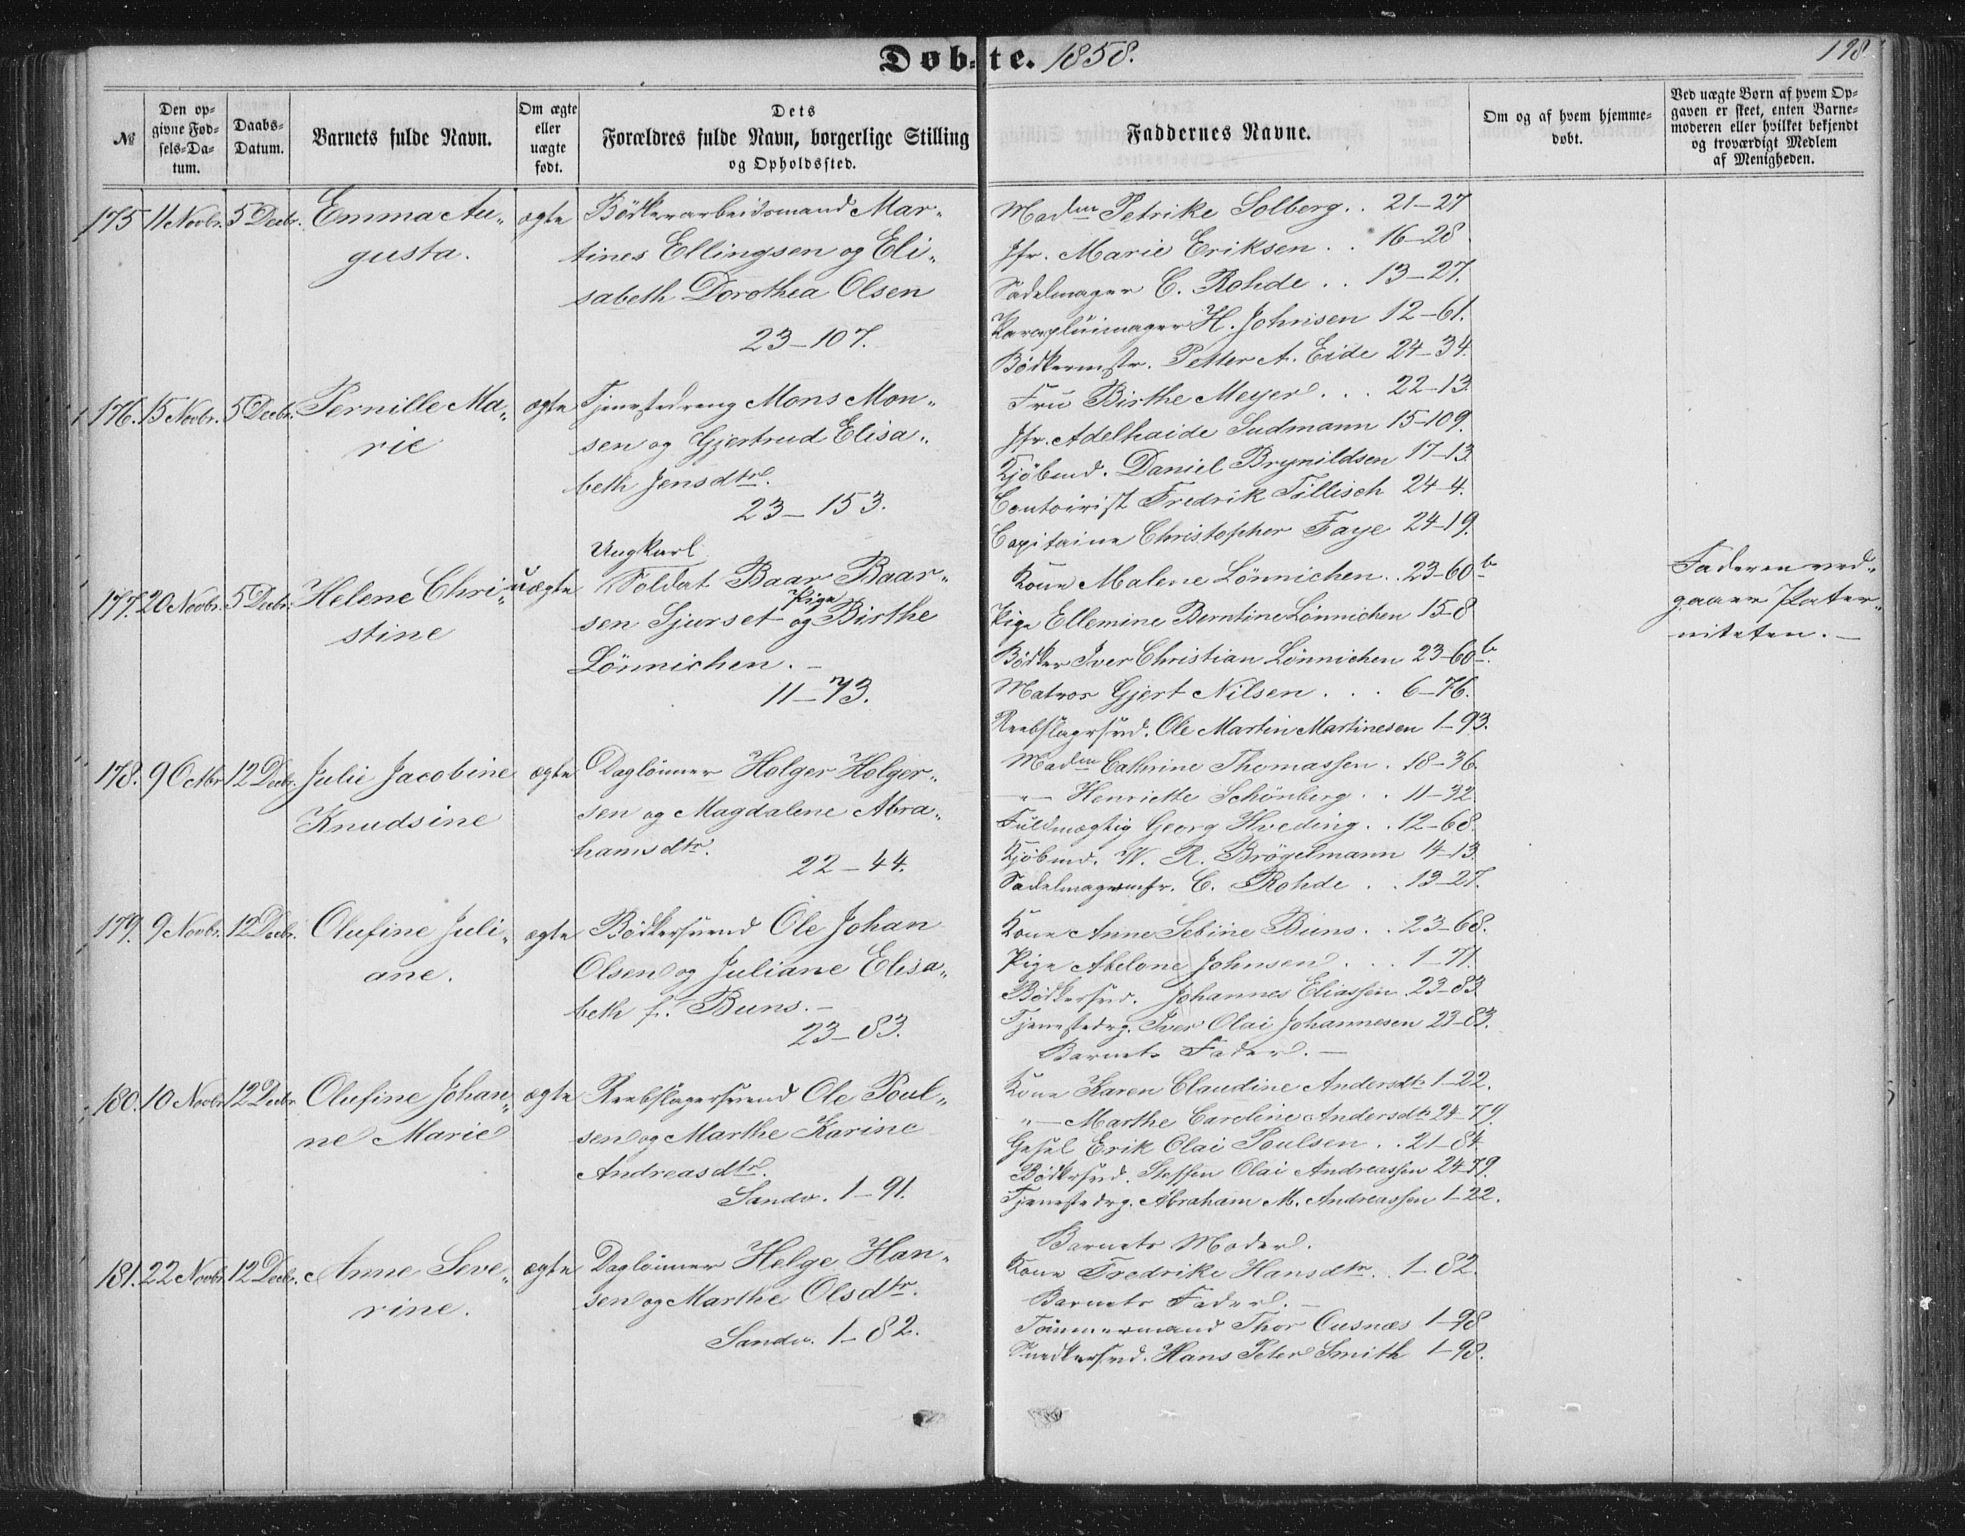 Døbte. 1858.
198
№
Den opgivne Fødsels-Datum.
Daabs-Datum.
Barnets fulde Navn.
Om ægte eller uægte født.
Dets Forældres fulde Navn, borgerlige Stilling og Opholdssted.
Faddernes Navne.
Om og af hvem hjemmedøbt.
Ved uægte Børn af hvem Opgaven er skeet, enten Barnemoderen eller hvilket bekjendt og troværdigt Medlem af Menigheden.
175 11 Novbr. 5 Decbr. Emma Au-
gusta.
ægte
Bødkerarbeidsmand Mar-
tines Ellingsen og Eli-
sabeth Dorothea Olsen
23-107.
Madm Petrike Solberg.. 21-27
Jfr. Marie Eriksen.. 16-28.
Sadelmager C. Rohde.. 13-27.
Parapluimager H. Johnsen 12-61.
Bødkermstr. Petter A. Eide 24-34.
176. 15 Novbr. 5 Decbr. Pernille Ma-
rie
ægte
Tjenestedreng Mons Mon-
sen og Gjertrud Elisa-
beth Jensdtr.
23-153.
Fru Birthe Meyer... 22-13.
Jfr. Adelhaide Sudmann 15-109.
Kjøbmd. Daniel Brynildsen 17-13
Contoirist Fredrik Tillisch 24-4.
Capitaine Christopher Faye 24-19.
177. 20 Novbr. 5 Decbr. Helene Chri-
stine
uægte
Ungkarl
Soldat Baar Baar-
sen Sjurset og Pige Birthe
Lønnichen.-
11-73.
Kone Malene Lønnichen.. 23-60b
Pige Ellemine Berntine Lønnichen 15-8
Bødker Iver Christian Lønnichen 23-60b.
Matros Gjert Nilsen... 6-76.
Reebslagersvd. Ole Martin Martinesen 1-93.
Faderen ved-
gaaer Pater-
niteten.-
178. 9 Octbr 12 Decbr. Julie Jacobine
Knudsine
ægte
Daglønner Holger Holger-
sen og Magdalene Abra-
hamsdtr.
22-44.
Madm Cathrine Thomassen. 18-36.
-"- Henriette Schönberg.. 11-32.
Fuldmægtig Georg Hveding.. 12-68.
Kjøbmd. W. R. Brøgelmann 14-13.
Sadelmagermstr. C. Rohde.. 13-27.
179. 9 Novbr. 12 Decbr. Olufine Juli-
ane.
ægte
Bødkersvend Ole Johan
Olsen og Juliane Elisa-
beth f. Buns.-
23-83.
Kone Anne Sebine Buns.. 23-68.
Pige Abelone Johnsen... 1-71.
Bødkersvd. Johannes Eliassen 23-83.
Tjenestedrg. Iver Olai Johannesen 23-83.
Barnets Fader.-
180. 10 Novbr. 12 Decbr. Olufine Johan-
ne Marie
ægte
Reebslagersvend Ole Poul-
sen og Marthe Karine
Andreasdtr.
Sandv. 1-91.
Kone Karen Claudine Andersdtr 1-22.
"- Marthe Caroline Andersdtr 24-79.
Gesel Erik Olai Poulsen.. 21-84
Bødkersvd. Steffen Olai Andreassen 24-79.
Tjenestedrg. Abraham M. Andreassen 1-22.
181. 22 Novbr. 12 Decbr. Anne Seve-
rine.
ægte
Daglønner Helge Han-
sen og Marthe Olsdtr.
Sandv. 1-82.
Barnets Moder.
Kone Fredrike Hansdtr.. 1-82.
Barnets Fader.-
Tømmermand Thor Ousnæs 1-98
Snedkersvd. Hans Peter Smith 1-98.